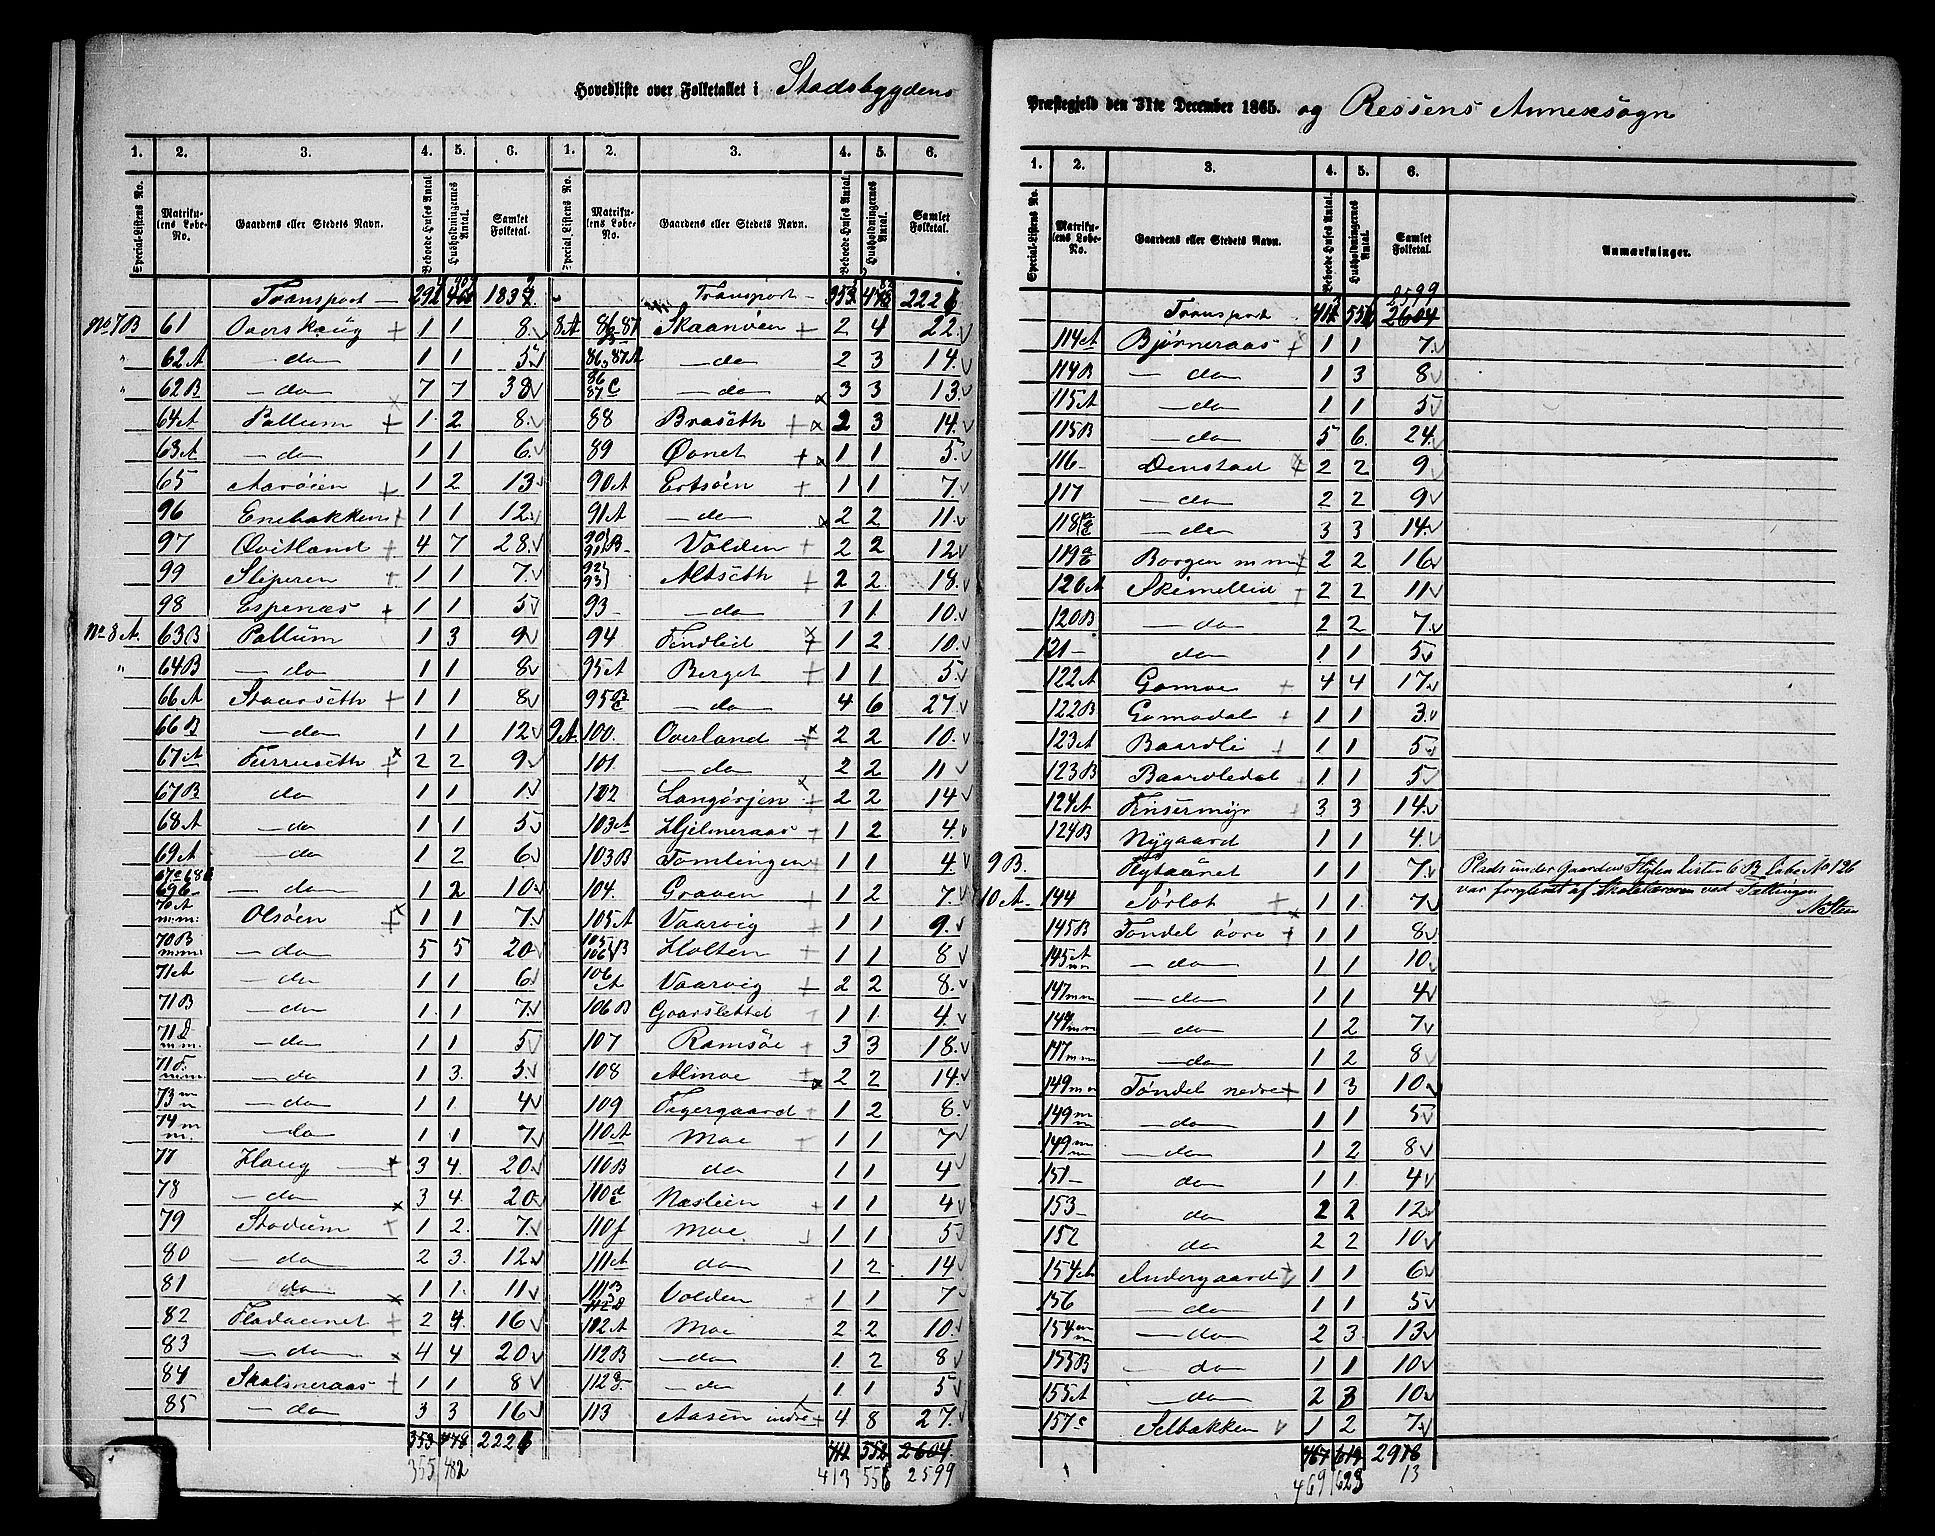 Hovedliste over Folketallet i Stadsbygdens
Præstegjeld den 31te December 1865. og Rissens Annexsogn
1. 2. 3. 4. 5. 6. 1. 2. 3. 4. 5. 6.
Special-Listens No. Matrikulens Løbe-No. Gaardens eller Stedets Navn. Beboede Huses Antal. Husholdningernes Antal. Samlet Folketal. Special-Listens No. Matrikulens Løbe-No. Gaardens eller Stedets Navn. Beboede Huses Antal. Husholdningernes Antal. Samlet Folketal.
Transport
No 7B 61 Overskaug 1 1 8
" 62A do 1 1 5
" 62B do 7 7 38
64A Pallum 1 2 8
63A do 1 6
65 Aarøien 1 2 13
96 Enebakken 1 1 12
97 Qvitland 4 7 28
99 Sliperen 1 1 7
98 Espenæs 1 1 5
No 8A. 63B Pallum 1 3 9
" 64B do 1 1 8
66A Staurseth 1 1 8
66B do 1 1 12
67A Furruseth 2 2 9
67B do 1 1 1
68A do 1 1 5
69A do 1 2 6
do 1 2 10
70A m.m. Olsøen 1 1 7
70B m.m. do 5 5 20
71A do 1 1 6
71B do 1 1 7
71D m.m. do 1 1 5
71F m.m. do 1 3 5
73 m m do 1 1 4
74 m m. do 1 1 7
77 Haug 3 4 20
78 do 3 4 20
79 Stadum 1 2 7
80 do 2 3 12
81 do 1 1 11
82 Fladaunet 2 4 16
83 do 4 4 20
84 Skalmeraas 1 1 8
85 do 3 3 16
353 478 2221
355 482
Transport
8A 86-87 Skaanøen 2 4 22
86, 87A do 2 3 14
86 87 C do 3 3 13
88 Braseth 2 3 14
89 Øvnet 1 1 5
90A Ertsøen 1 1 7
91A do 2 2 11
90 91 B Volden 2 2 12
92 93 Altseth 2 2 18
93 do 1 1 10
94 Findlid 1 2 10
95A Berget 1 1 5
95 do 4 6 27
9A. 100. Overland 2 2 10
101 do 2 2 11
102 Langørjen 2 2 14
103A Hjelmeraas 1 2 4
103B Tomlingen 1 1 4
104. Graven 1 2 7
105A Vaarvig 1 1 9
105 106 B Holten 1 1 8
106 A Vaarvig 2 2 8
106B Gaarslettet 1 1 4
107 Ramsøe 3 3 18
108 Almoe 2 2 14
109 Fagergaard 1 2 8
110A Moe 1 1 7
110B do 1 1 4
110 Næslien 1 1 4
110f Moe 1 1 5
111A do 1 2 14
111B Volden 1 1 7
Moe 2 2 10
112B do 1 2 8
112 do 1 1 5
113 Aasen indre 4 8 27
412 552 2604
413 556 2599
1. 2. 3. 4. 5. 6.
Special-Listens No. Matrikulens Løbe-No. Gaardens eller Stedets Navn. Beboede Huses Antal. Husholdningernes Antal. Samlet Folketal. Anmærkninger.
2599
Transport 2604
114A Bjørneraas 1 1 7
114B do 1 3 8
115A do 1 1 5
115B do 5 6 24
116 Denstad 2 2 9
117 do 2 2 9
118 do 3 3 14
119 Borgen m m 2 2 16
120A Skimellid 2 2 11
120B do 2 2 7
121 do 1 1 5
122A Gamoe 4 4 17
122B Gamodal 1 1 3
123A Baardli 1 1 5
123B Baardlidal 1 1 5
124A Finsermyr 3 3 14
124B Nygaard 1 1 4
9B. Flytaaret 1 1 7 Plads under Gaarden Flyta Listen 6B Løbe No 126
10A. 144 Sørlot 1 1 7 var forglemt af Skolelæreren ved Tællingen
N Steen
145B Tøndel øvre 1 1 8
145A m m do 1 1 10
147 m m do 1 1 4
149 m m do 1 2 7
147 m m do 1 2 8
149 m m Tøndel nedre 1 3 10
149 m m do 1 1 5
149 m m do 1 2 8
151 do 1 1 4
153 do 2 2 12
152 do 2 2 10
154A Andergaard 1 1 6
156 do 1 1 5
154 m m do 2 3 13
155B do 1 1 10
155A do 2 3 10
157c Selbakken 1 2 7
467 619 2918
469 623 13